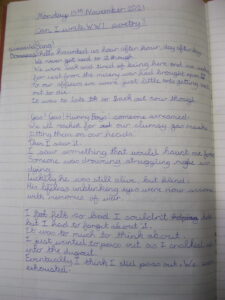 Monday 15th November 2021
Can I write WW1 poetry?
Bang!
Shells haunted us hour after hour, day after day
We never got used to it though
We were sick and tired of being here and we
for rest from the misery war had brought upon us
to our officers we were just little ants getting sent
out to die.
It was to late to back out now though
Gas! Gas! Hurry Boys! someone screamed.
We all rushed for our clumsy gas masks
fitting them on our heads.
Then I saw it.
I saw something that would haunt me for
Someone was drowning, struggling
dying.
Luckily he was still alive but blind.
His lifeless unblinking eyes were now
with memories of war.
I felt so bad I couldn't
but I had to forget about it.
It was to much to think about.
I just wanted to pass out as I
into the dugout.
Eventually I think I did pass out. We were
exhausted.